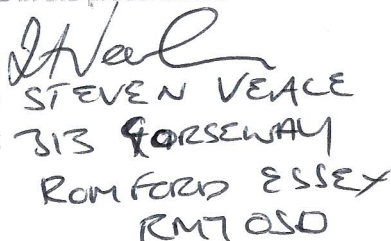 STEVEN VEALE
313 GORSEWAY
ROMFORD ESSEX
RM7 0SD